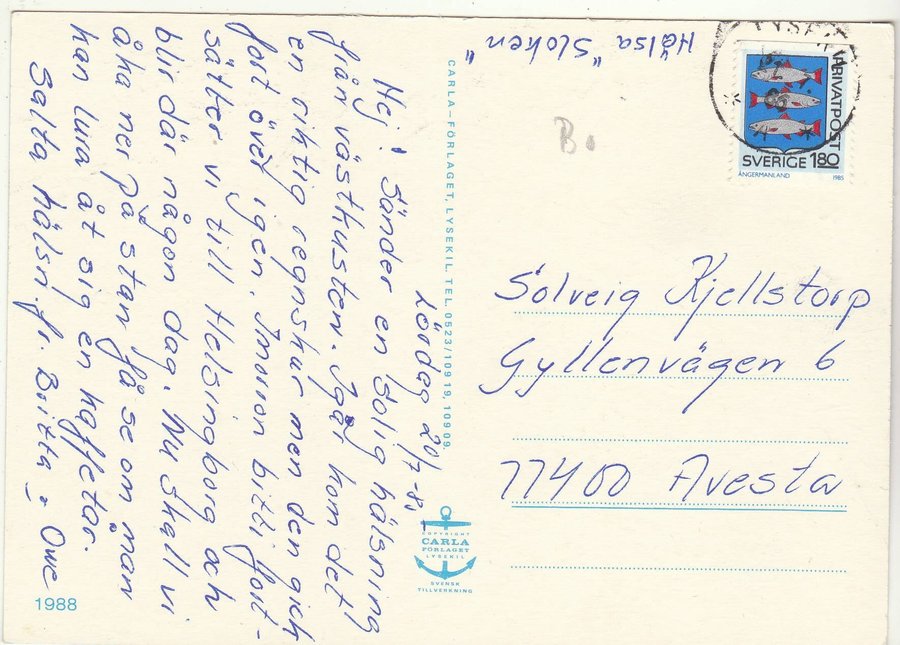 Lördag 20/7-8
Hej! Sänder en solig hälsning
från västkusten. Igår kom det
en riktig regnskur men den gick
fort över igen. Imorron bitti fort-
sätter vi till Helsingborg och
blir där någon dag. Nu skall vi
åka ner på stan få se om man
kan lura åt sig en kaffetår.
Salta hälsn. fr. Britta o Owe
Hälsa "Sloken"
1988
CARLA-FÖRLAGET, LYSEKIL, TEL. 0523/109 19, 109 09.
COPYRIGHT
CARLA
FÖRLAGET
LYSEKIL
SVENSK
TILLVERKNING
B
LYSEKIL
PRIVATPOST
SVERIGE 180
ÅNGERMANLAND 1985
Solveig Kjellstorp
Gyllenvägen 6
77400 Avesta